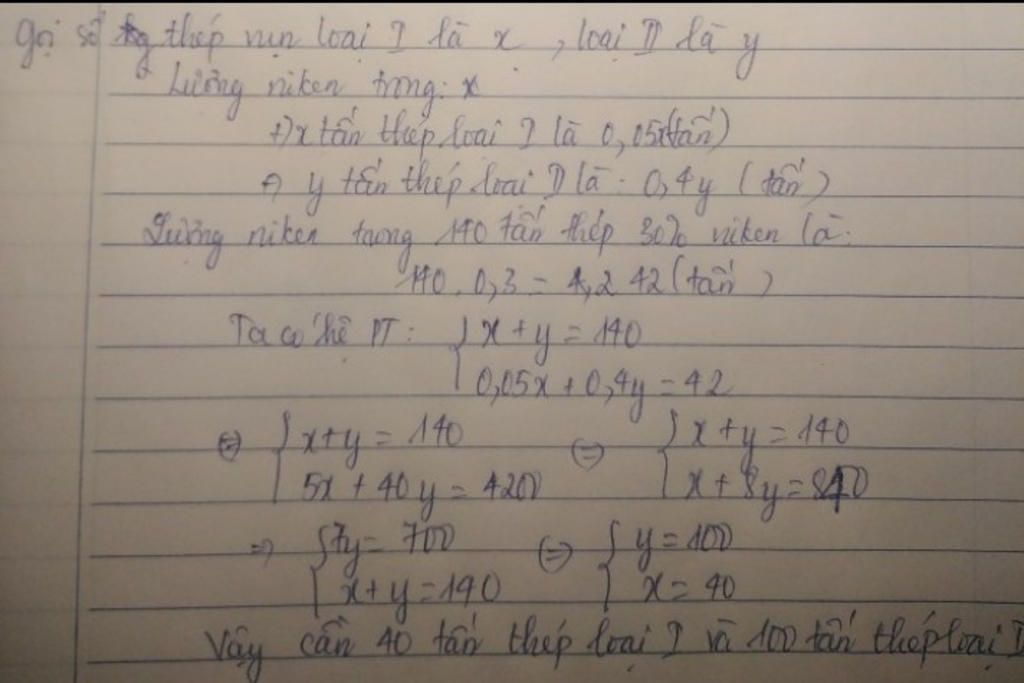 Gọi số thép vụn loại I là x, loại II là y
Lượng niken trong: x
+) x tấn thép loại I là 0,05x (tấn)
+) y tấn thép loại II là: 0,4y (tấn)
Lượng niken trong 140 tấn thép 30% niken là:
140. 0,3 = 42 (tấn)
Ta có hệ PT: { x + y = 140
0,05x + 0,4y = 42
⇔ { x+y = 140 ⇔ { x + y = 140
5x + 40y = 4200 x + 8y = 840
⇒ { 7y = 700 ⇔ { y = 100
x + y = 140 x = 40
Vậy cần 40 tấn thép loại I và 100 tấn thép loại I